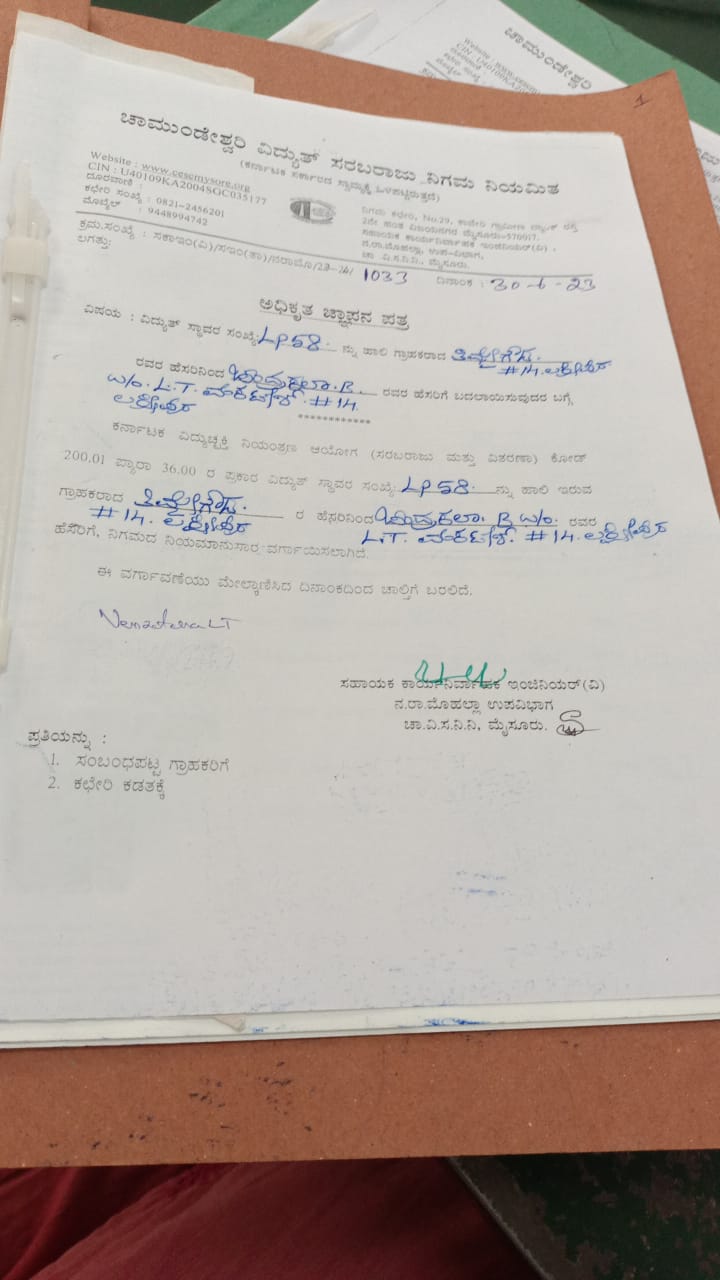 1
ಚಾಮುಂಡೇಶ್ವರಿ
ಚಾಮುಂಡೇಶ್ವರಿ ವಿದ್ಯುತ್ ಸರಬರಾಜು ನಿಗಮ ನಿಯಮಿತ
(ಕರ್ನಾಟಕ ಸರ್ಕಾರದ ಸ್ವಾಮ್ಯಕ್ಕೆ ಒಳಪಟ್ಟಿರುತ್ತದೆ)
Website : www.cescmysore.org
CIN : U40109KA2004SGC035177
ದೂರವಾಣಿ :
ಕಛೇರಿ ಸಂಖ್ಯೆ : 0821-2456201
ಮೊಬೈಲ್ : 9448994742
ನಿಗಮ ಕಛೇರಿ, No.29, ಕಾವೇರಿ ಗ್ರಾಮೀಣ ಬ್ಯಾಂಕ್ ರಸ್ತೆ
2ನೇ ಹಂತ ವಿಜಯನಗರ ಮೈಸೂರು-570017.
ಸಹಾಯಕ ಕಾರ್ಯನಿರ್ವಾಹಕ ಇಂಜಿನಿಯರ್(ವಿ) .
ನ.ರಾ.ಮೊಹಲ್ಲಾ, ಉಪ-ವಿಭಾಗ,
ಚಾ.ವಿ.ಸ.ನಿ.ನಿ., ಮೈಸೂರು.
ಕ್ರಮ.ಸಂಖ್ಯೆ : ಸಕಾಇಂ(ವಿ)/ಸಇಂ(ತಾ)/ನರಾಮೊ/23-24/ 1033 ದಿನಾಂಕ : 30-6-23
ಲಗತ್ತು:
ಅಧಿಕೃತ ಜ್ಞಾಪನ ಪತ್ರ
ವಿಷಯ : ವಿದ್ಯುತ್ ಸ್ಥಾವರ ಸಂಖ್ಯೆ: LP58. ನ್ನು ಹಾಲಿ ಗ್ರಾಹಕರಾದ ತಿಮ್ಮೇಗೌಡ.
#14.
ರವರ ಹೆಸರಿನಿಂದ ಚಂದ್ರಕಲಾ.B. ರವರ ಹೆಸರಿಗೆ ಬದಲಾಯಿಸುವುದರ ಬಗ್ಗೆ.
W/o. L.T. #14.
************
ಕರ್ನಾಟಕ ವಿದ್ಯುಚ್ಛಕ್ತಿ ನಿಯಂತ್ರಣ ಆಯೋಗ (ಸರಬರಾಜು ಮತ್ತು ವಿತರಣಾ) ಕೋಡ್
200.01 ಪ್ಯಾರಾ 36.00 ರ ಪ್ರಕಾರ ವಿದ್ಯುತ್ ಸ್ಥಾವರ ಸಂಖ್ಯೆ: LP58. ನ್ನು ಹಾಲಿ ಇರುವ
ಗ್ರಾಹಕರಾದ ತಿಮ್ಮೇಗೌಡ. ರ ಹೆಸರಿನಿಂದ ಚಂದ್ರಕಲಾ. B W/o. ರವರ
#14. L.T. #14.
ಹೆಸರಿಗೆ, ನಿಗಮದ ನಿಯಮಾನುಸಾರ ವರ್ಗಾಯಿಸಲಾಗಿದೆ.
ಈ ವರ್ಗಾವಣೆಯು ಮೇಲ್ಕಾಣಿಸಿದ ದಿನಾಂಕದಿಂದ ಚಾಲ್ತಿಗೆ ಬರಲಿದೆ.
ಸಹಾಯಕ ಕಾರ್ಯನಿರ್ವಾಹಕ ಇಂಜಿನಿಯರ್(ವಿ)
ನ.ರಾ.ಮೊಹಲ್ಲಾ ಉಪವಿಭಾಗ
ಚಾ.ವಿ.ಸ.ನಿ.ನಿ, ಮೈಸೂರು.
ಪ್ರತಿಯನ್ನು :
1. ಸಂಬಂಧಪಟ್ಟ ಗ್ರಾಹಕರಿಗೆ
2. ಕಛೇರಿ ಕಡತಕ್ಕೆ